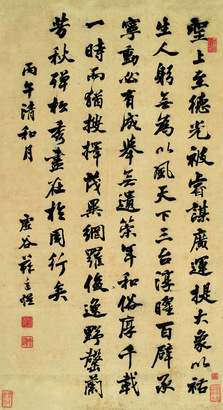 聖上至德光被睿謀廣運提大象以祐
生人躬無為以風天下三台淳曜百辟承
寧動必有成舉無遺策年和俗厚千載
一時而猶搜揚茂異網羅俊逸野馨蘭
芳秋殫松秀盡在於周行矣
丙午清和月
虛谷